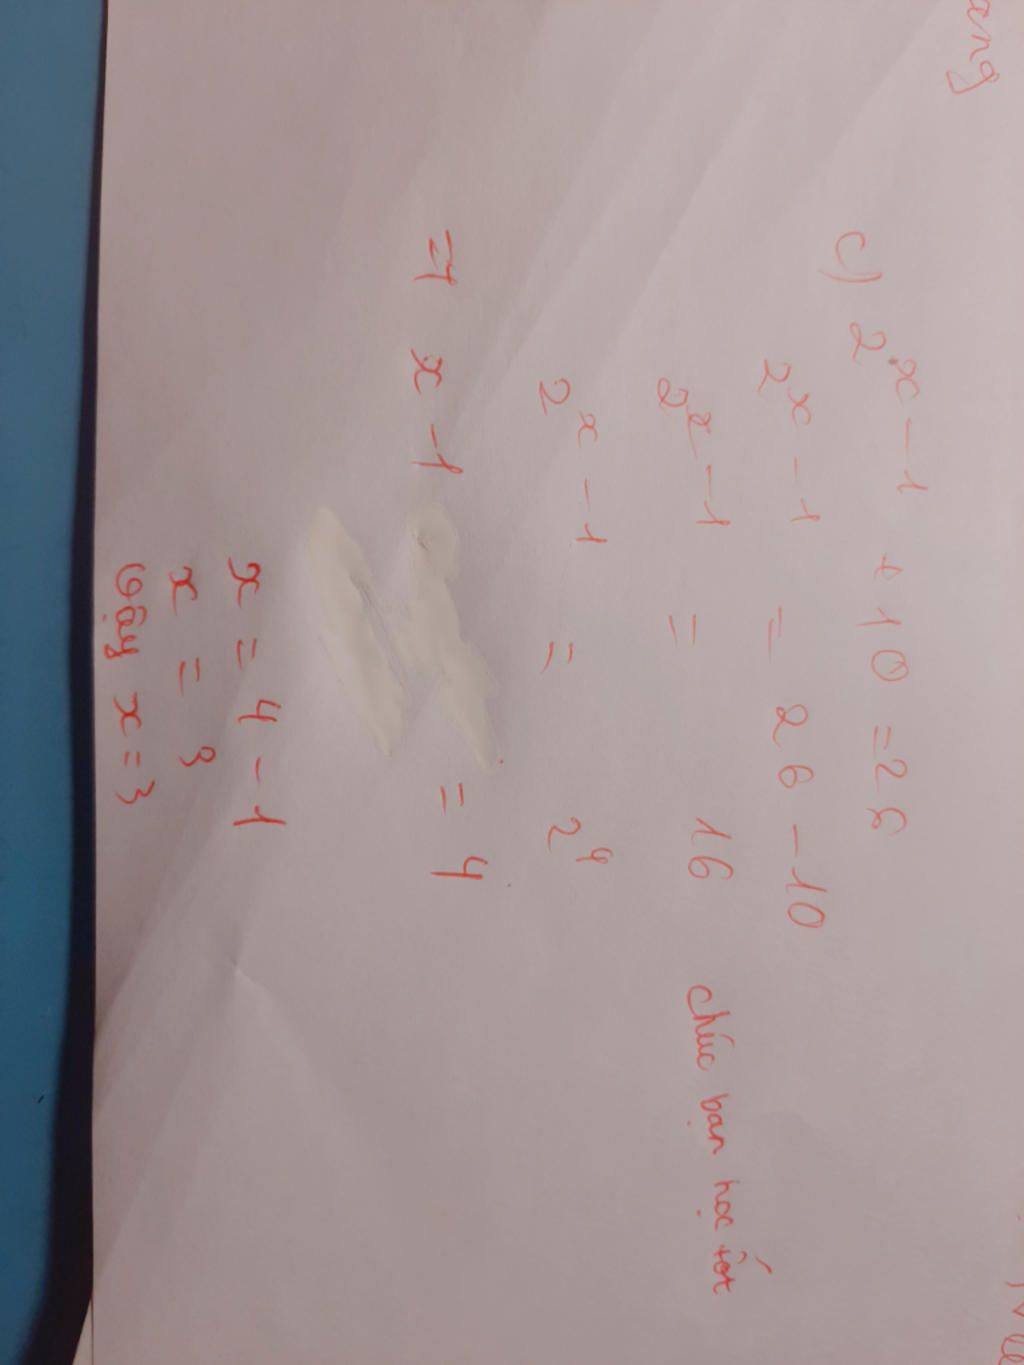 ang
c) 2^x-1 + 10 = 26
2^x-1 = 26 - 10
2^x-1 = 16
chúc bạn học tốt
2^x-1 = 2^4
=> x - 1 = 4
x = 4 - 1
x = 3
vậy x = 3